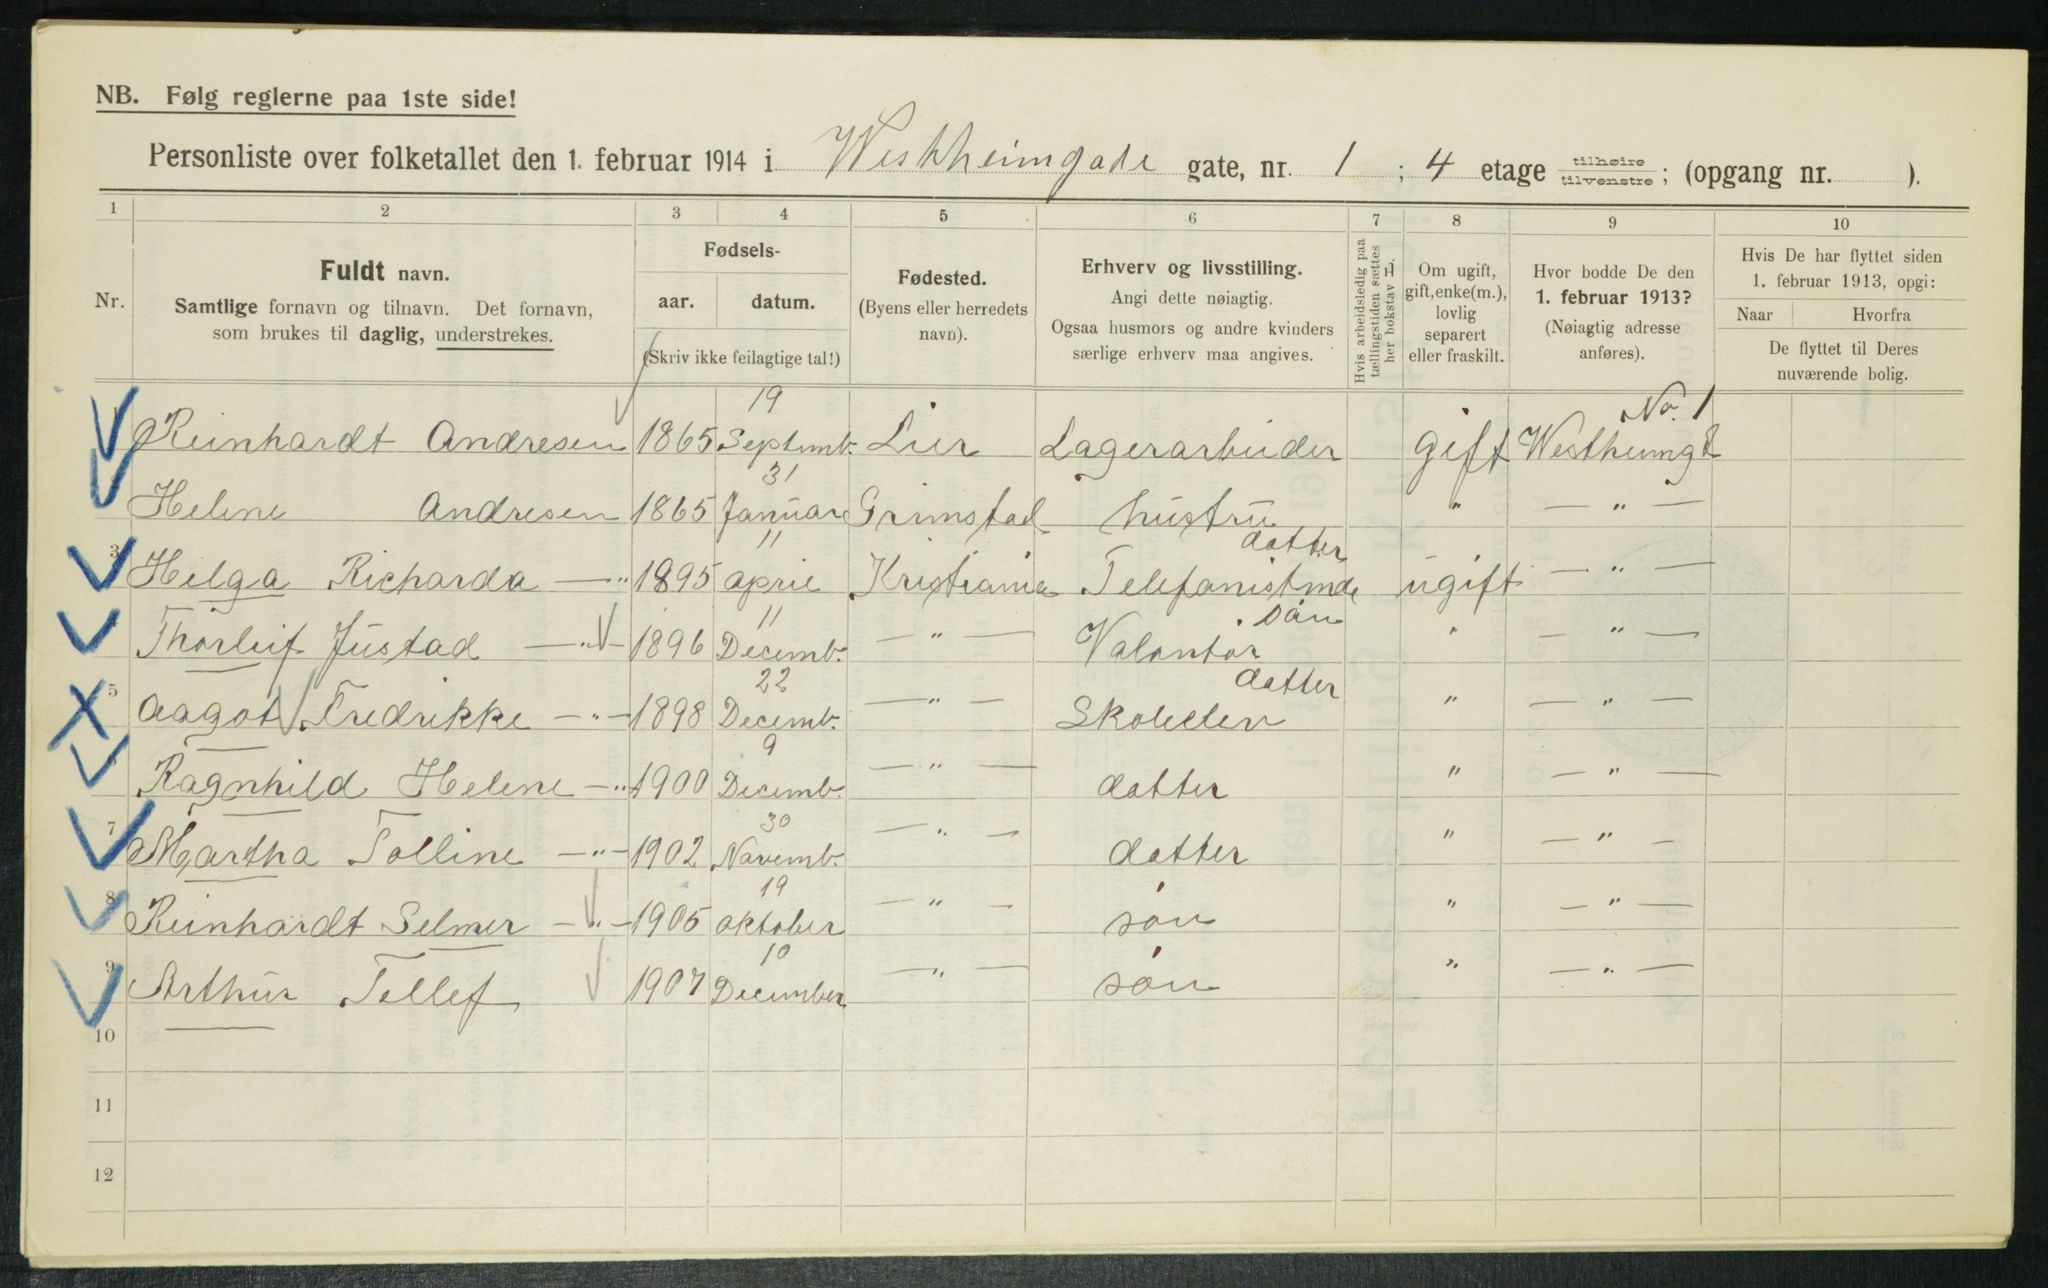 NB. Følg reglerne paa 1ste side!
Personliste over folketallet den 1. februar 1914 i Westhheimgade gate, nr. 1 ; 4 etage tilhøire tilvenstre; (opgang nr. ).
1 2 3 4 5 6 7 8 9 10
Nr.
Fuldt navn.
Samtlige fornavn og tilnavn. Det fornavn,
som brukes til daglig, understrekes.
Fødsels-
aar. datum.
(Skriv ikke feilagtige tal!)
Fødested.
(Byens eller herredets
navn).
Erhverv og livsstilling.
Angi dette nøiagtig.
Ogsaa husmors og andre kvinders
særlige erhverv maa angives.
Hvis arbeidsledig paa
tællingstiden sættes
her bokstav L.
Om ugift,
gift, enke(m.),
lovlig
separert
eller fraskilt.
Hvor bodde De den
1. februar 1913?
(Nøiagtig adresse
anføres).
Hvis De har flyttet siden
1. februar 1913, opgi:
Naar Hvorfra
De flyttet til Deres
nuværende bolig.
Reinhardt Andresen 1865 19 Septemb. Lier Lagerarbeider gift Westheimgt No. 1
Helene Andresen 1865 31 Januar Grimstad hustru " — " —
3 Helga Richarda — " 1895 11 April Kristiania datter Telefonistinde ugift — " —
Thorleif Justad — " — 1896 11 Decemb. — " — søn Volontør " — " —
5 Aagot Fredrikke — " — 1898 22 Decemb. — " — datter Skoleelev " — " —
6 Ragnhild Helene — " 1900 9 Decemb. — " — datter " — " —
7 Martha Tolline — " — 1902 30 Novemb. — " — datter " — " —
8 Reinhardt Selmer — " — 1905 19 Oktober — " — søn " — " —
9 Arthur Tellef 1907 10 December — " — søn " — " —
10
11
12